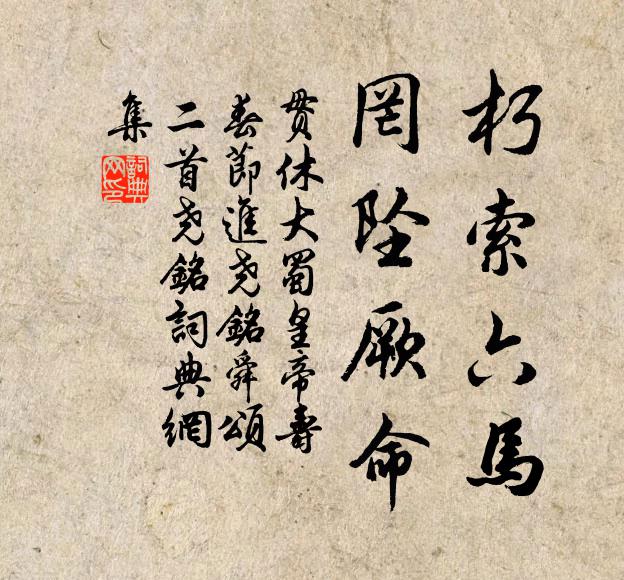 朽索六馬
罔墜厥命
貫休大蜀皇帝壽
春節進堯銘舜頌
二首堯銘詞典網
集
詞典网印